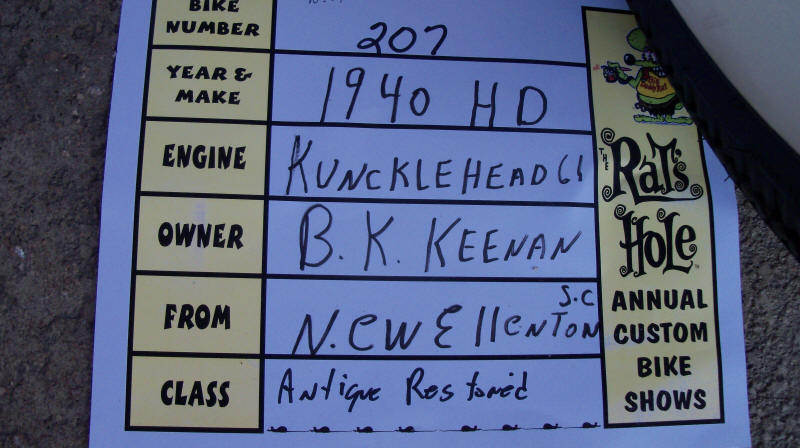 BIKE NUMBER 207
YEAR & MAKE 1940 HD
ENGINE KUNCKLEHEAD 61
OWNER B. K. KEENAN
FROM NEW EllENTON S.C
CLASS Antique Restored
THE
RAT's
HOLE
ANNUAL
CUSTOM
BIKE
SHOWS